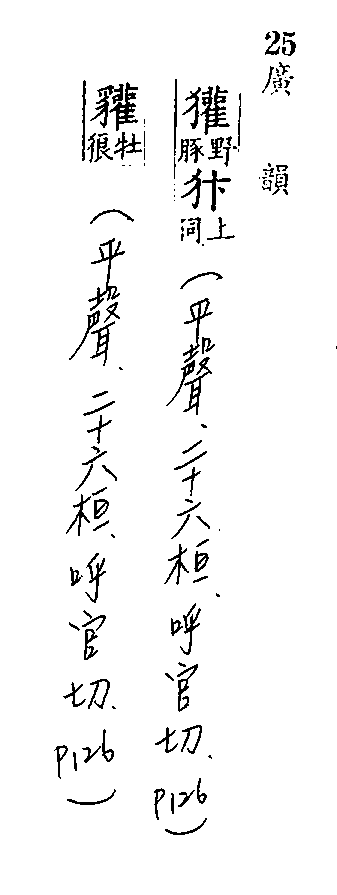 25廣韻
獾野豚犿上同（平聲、二十六桓、呼官切、P126）
貛牡狼（平聲、二十六桓、呼官切、P126）